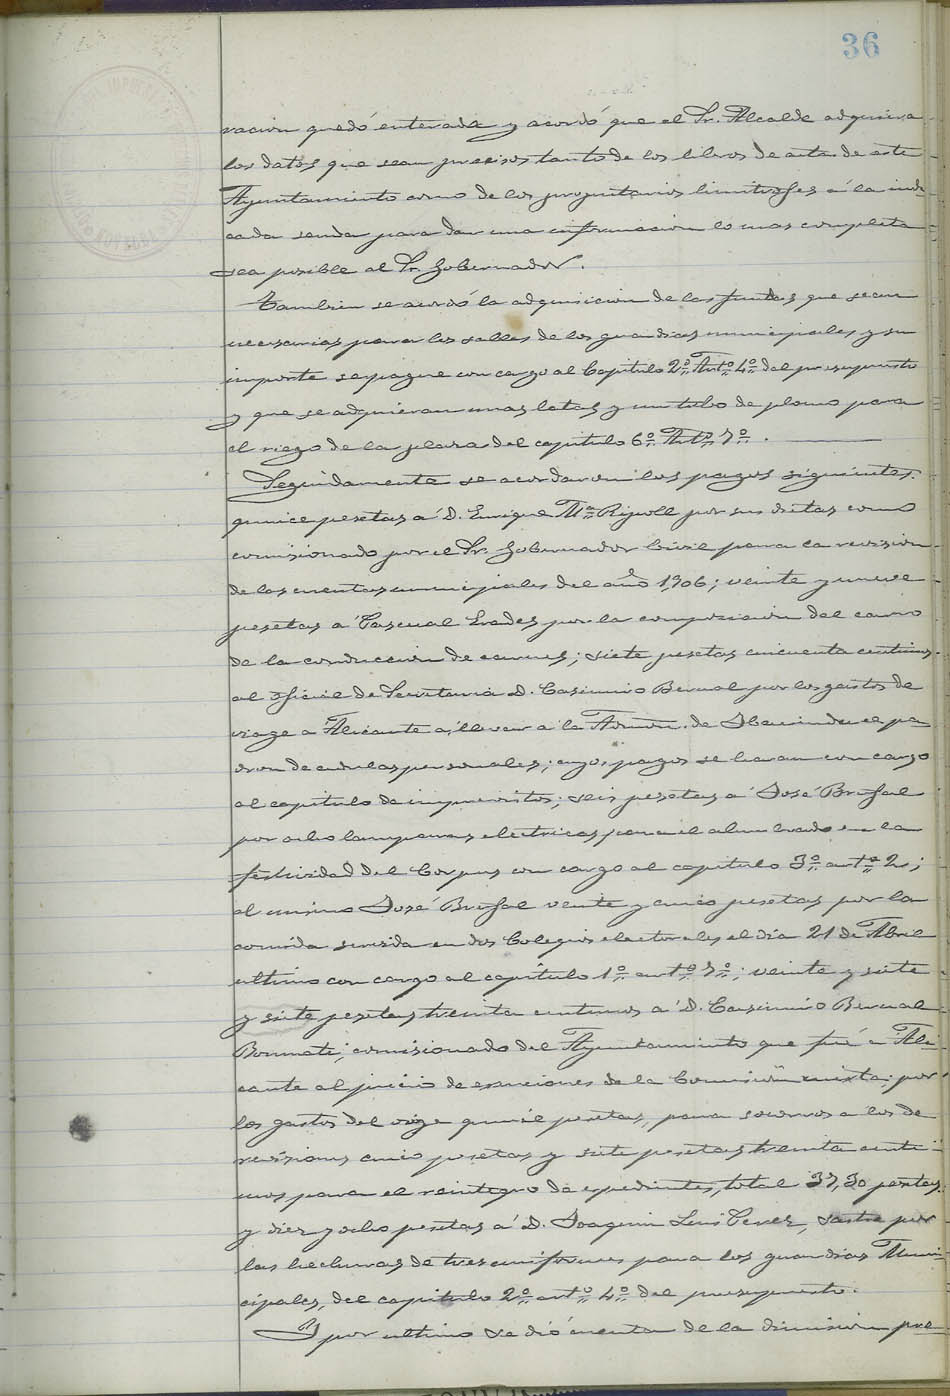 36
racion quedó enterada y acordó que el Sr. Alcalde adquiera
los datos que sean precisos tanto de los libros de acta de este
Ayuntamiento como de los propietarios limitrofes á la indi
cada senda para dar una informacion lo mas completa
sea posible al Sr. Gobernador.
Tambien se acordó la adquisicion de las fundas que sean
necesarias para los sables de los guardias municipales y su
importe se pague con cargo al Capitulo 2º Artº 4º del presupuesto
y que se adquieran unas latas y un tubo de plomo para
el riego de la plaza del capitulo 6º Artº 7º.
Seguidamente se acordaron los pagos siguientes:
quince pesetas á D. Enrique Mª Ripoll por sus dietas como
comisionado por el Sr. Gobernador Civil para la revision
de las cuentas municipales del año 1,906; veinte y nueve
pesetas á Pascual Prades por la composicion del carro
de la conduccion de carnes; siete pesetas cincuenta centimos
al oficial de Secretaria D. Casimiro Bernal por los gastos de
viage a Alicante á llevar a la Admon. de Hacienda el pa
dron de cedulas personales; cuyos pagos se haran con cargo
al capitulo de imprevistos; seis pesetas á José Brufal
por ocho lamparas electricas para el alumbrado en la
festividad del Corpus con cargo al capitulo 3º artº 2;
al mismo José Brufal veinte y cinco pesetas por la
comida servida en dos Colegios electorales el dia 21 de Abril
ultimo con cargo al capitulo 1º artº 7º; veinte y siete
y siete pesetas treinta centimos a D. Casimiro Bernal
Bonmati, comisionado del Ayuntamiento que fué a Ali-
cante al juicio de esenciones de la Comision mixta; por
los gastos del viage quince pesetas, para socorros a los de
revisiones cinco pesetas y siete pesetas treinta centi-
mos para el reintegro de espedientes, total 37,30 pesetas;
y diez y ocho pesetas á D. Joaquin Perez, sastre por
las hechuras de tres uniformes para los guardias Muni
cipales, del capitulo 2º artº 4º del presupuesto.
Y por ultimo se dió cuenta de la dimision pre-